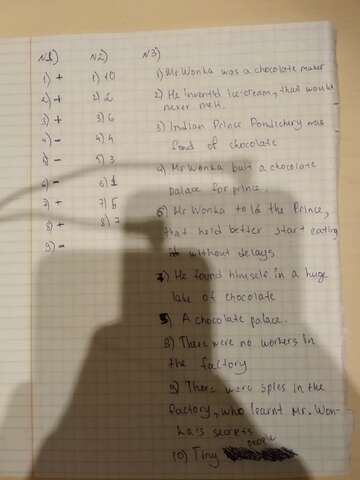 N1) N2) N3)
1) + 1) +0 1) Mr Wonka was a chocolate maker
2) + 2) 2 2) He invented ice-cream, that would
never melt.
3) + 3) 6 3) Indian Prince Pondichery was
fond of chocolate
4) - 4) 4
5) - 5) 3 4) Mr Wonka built a chocolate
palace for prince.
6) - 6) 1
7) + 7) 5 6) Mr Wonka told the Prince,
8) + 8) 7 that he'd better start eating
9) - it without delays
7) He found himself in a huge
lake of chocolate
5) A chocolate palace.
8) There were no workers in
the factory
9) There were spies in the
factory, who learnt Mr. Won-
ka's secrets
10) Tiny people